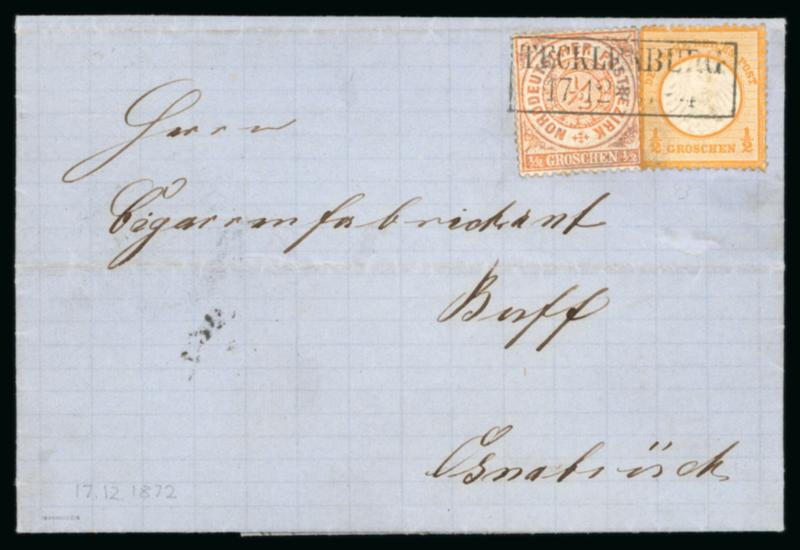 TECKLENBURG
17 12
NORDDEUTSCHER POSTBEZIRK
1/2 GROSCHEN 1/2
POST
1/2 GROSCHEN 1/2
Herrn
Cigarrenfabrickant
Osnabrück
17.12.1872